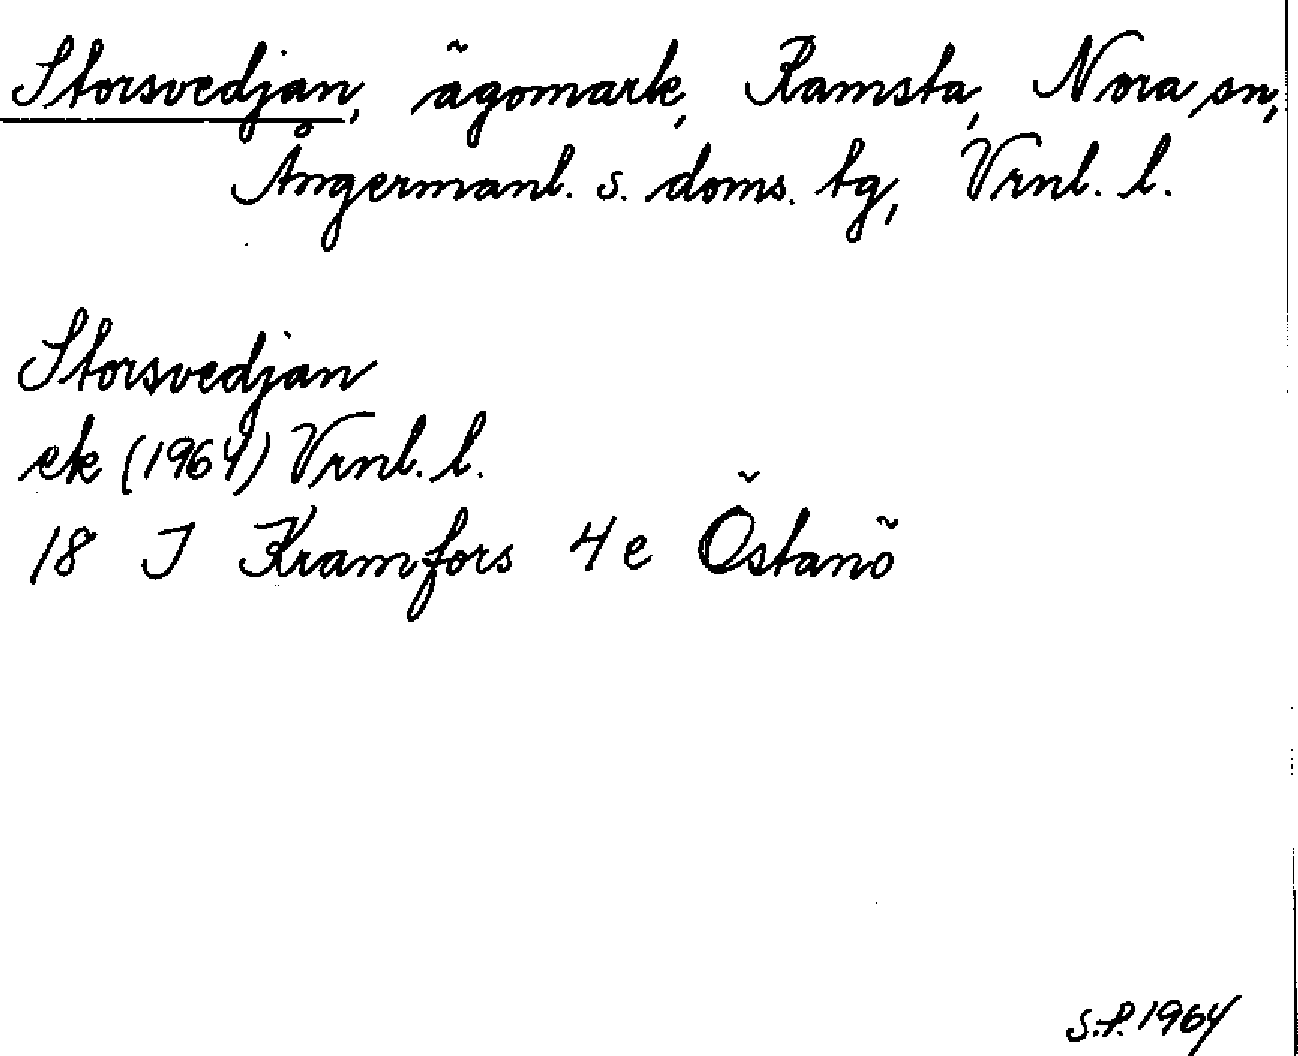 Storsvedjan, ägomark, Ramsta, Nora sn,
Ångermanl. s. doms. tg, Vrnl. l.
Storsvedjan
ek (1964) Vrnl. l.
18 J Kramfors 4 e Östanö
S.P. 1964